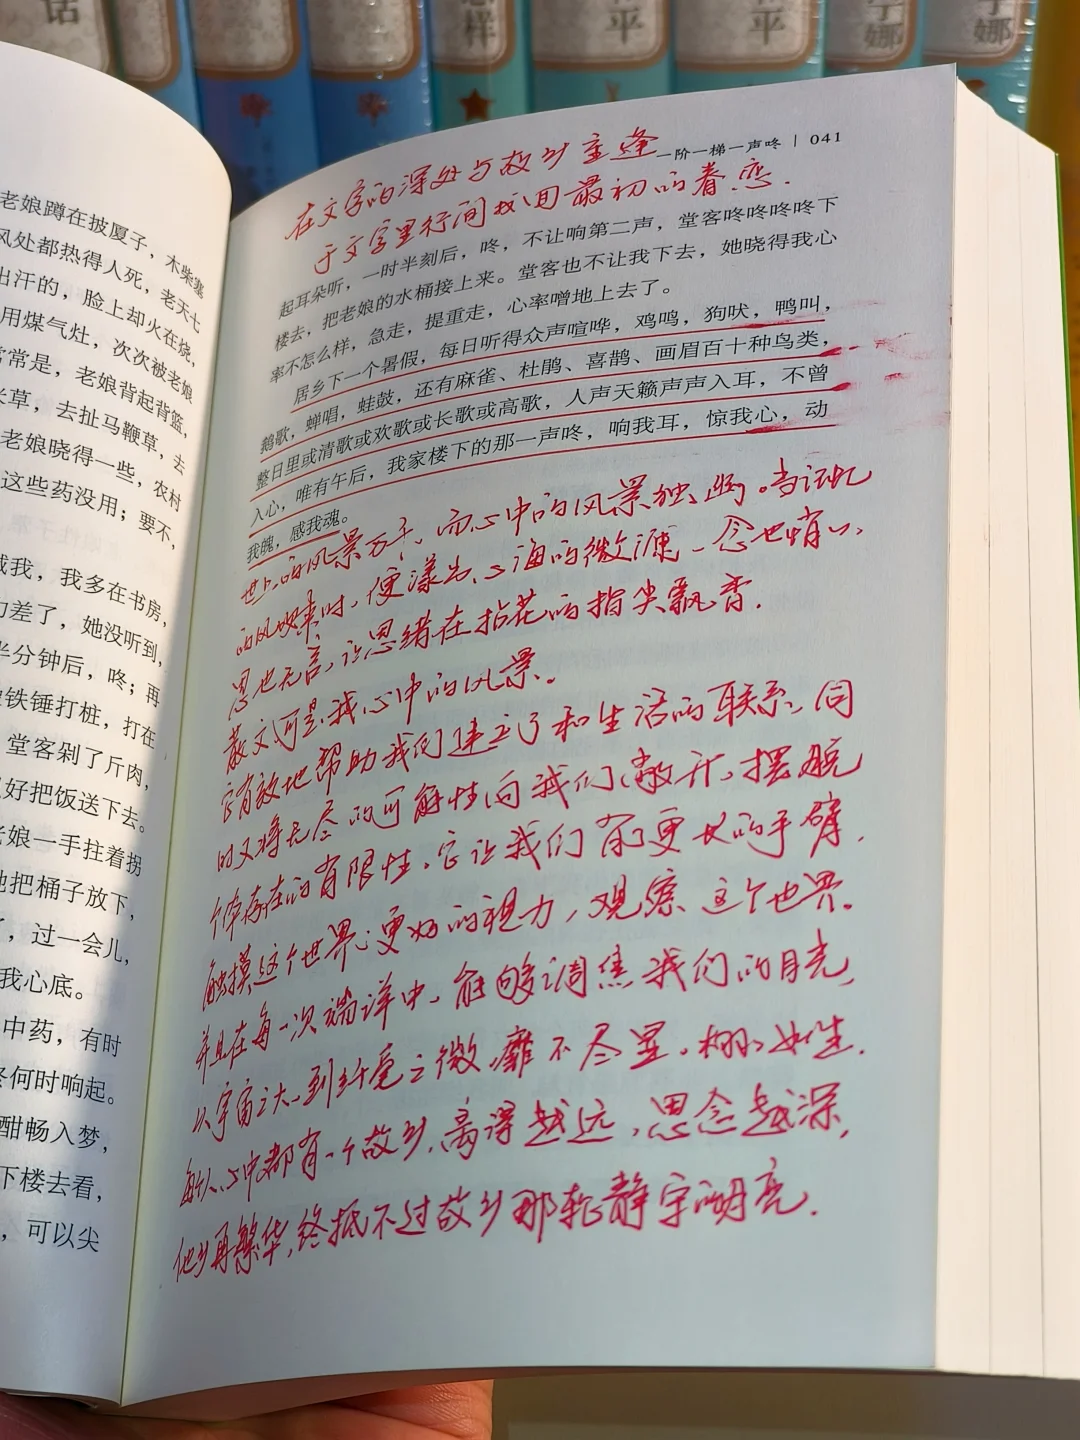 话
怎样
平
平
宁娜
宁娜
老娘蹲在披厦子，木柴塞
风处都热得人死，老天七
出汗的，脸上却火在烧，
用煤气灶，次次被老娘
常常是，老娘背起背篮，
草，去扯马鞭草，去
老娘晓得一些，农村
这些药没用；要不，
我，我多在书房，
差了，她没听到，
半分钟后，咚；再
铁锤打桩，打在
堂客剁了斤肉，
好把饭送下去。
老娘一手拄着拐
她把桶子放下，
，过一会儿，
我心底。
中药，有时
何时响起。
酣畅入梦，
下楼去看，
，可以尖
一阶一梯一声咚 | 041
在文字的深处与故乡重逢
于文字里行间找回最初的眷恋.
起耳朵听，一时半刻后，咚，不让响第二声，堂客咚咚咚咚下
楼去，把老娘的水桶接上来。堂客也不让我下去，她晓得我心
率不怎么样，急走，提重走，心率噌地上去了。
居乡下一个暑假，每日听得众声喧哗，鸡鸣，狗吠，鸭叫，
鹅歌，蝉唱，蛙鼓，还有麻雀、杜鹃、喜鹊、画眉百十种鸟类，
整日里或清歌或欢歌或长歌或高歌，人声天籁声声入耳，不曾
入心，唯有午后，我家楼下的那一声咚，响我耳，惊我心，动
我魄，感我魂。
世上的风景万千，而心中的风景独幽。当记忆
的风吹来时，便漾出心海的微澜，念也悄然，
思也无言，让思绪在拈花的指尖飘香.
散文可是我心中的风景。
它有效地帮助我们建立了和生活的联系，同
时又将无尽的可能性向我们敞开，摆脱
个体存在的有限性，它让我们有更长的手臂，
触摸这个世界；更好的视力，观察这个世界。
并且在每一次端详中，能够调焦我们的目光，
从宇宙之大，到纤毫之微，靡不尽显，栩栩如生.
每个人心中都有一个故乡，离得越远，思念越深，
他乡再繁华，终抵不过故乡那轮静宁的明亮.